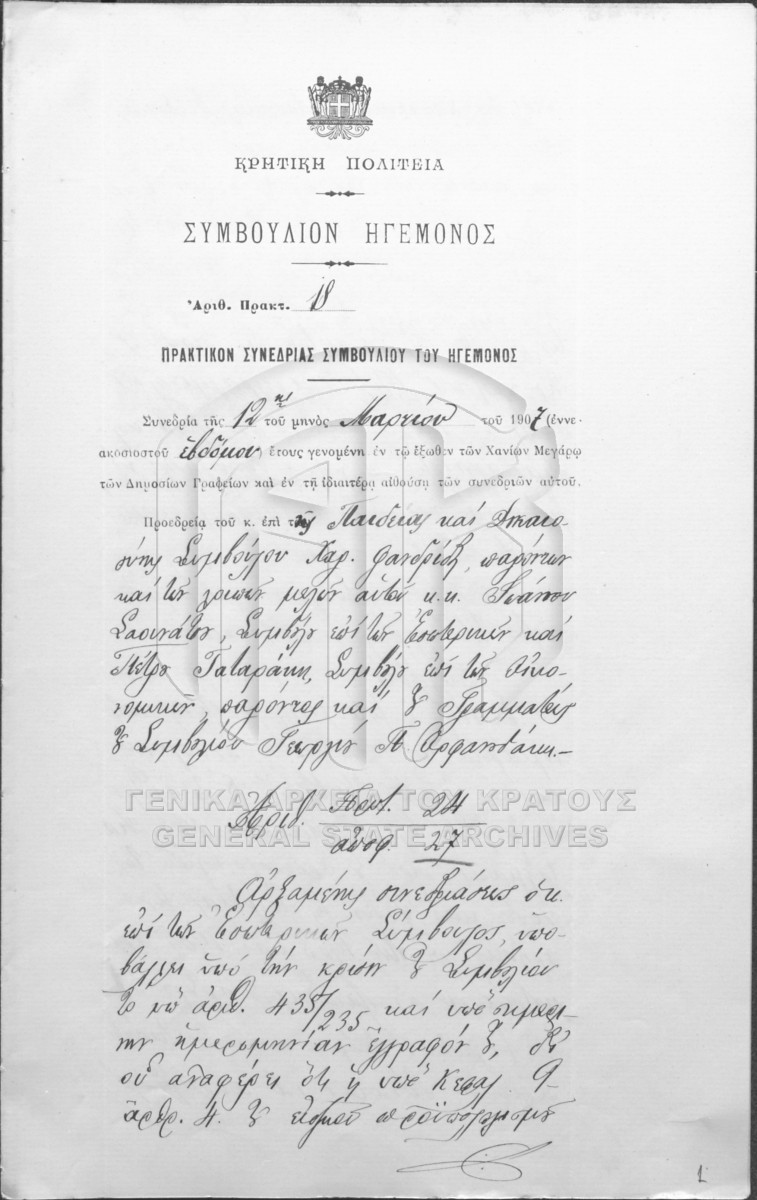 ΚΡΗΤΙΚΗ ΠΟΛΙΤΕΙΑ
ΣΥΜΒΟΥΛΙΟΝ ΗΓΕΜΟΝΟΣ
Ἀριθ. Πρακτ. 18
ΠΡΑΚΤΙΚΟΝ ΣΥΝΕΔΡΙΑΣ ΣΥΜΒΟΥΛΙΟΥ ΤΟΥ ΗΓΕΜΟΝΟΣ
Συνεδρία τῆς 12ης τοῦ μηνὸς Μαρτίου τοῦ 1907 (ἐννε-
ακοσιοστοῦ ἑβδόμου) ἔτους γενομένη ἐν τῷ ἔξωθεν τῶν Χανίων Μεγάρῳ
τῶν Δημοσίων Γραφείων καὶ ἐν τῇ ἰδιαιτέρᾳ αἰθούσῃ τῶν συνεδριῶν αὐτοῦ.
Προεδρείᾳ τοῦ κ. ἐπὶ τῆς Παιδείας καὶ Δικαιο-
σύνης Συμβούλου Χαρ. παρόντων
καὶ τῶν λοιπῶν μελῶν αὐτοῦ κ.κ. Ἰωάννου
Συμβούλου ἐπὶ τῶν Ἐσωτερικῶν καὶ
Πέτρου Συμβούλου ἐπὶ τῶν Οἰκο-
νομικῶν, παρόντος καὶ τοῦ Γραμματέως
τοῦ Συμβουλίου Γεωργίου Π. Ὀρφανουδάκη.—
Ἀριθ. Πρωτ. 24
ἀποφ. 27
ΓΕΝΙΚΑ ΑΡΧΕΙΑ ΤΟΥ ΚΡΑΤΟΥΣ
GENERAL STATE ARCHIVES
Ἀρξαμένης συνεδριάσεως ὁ κ.
ἐπὶ τῶν Ἐσωτερικῶν Σύμβουλος, ὑπο-
βάλλει ὑπὸ τὴν κρίσιν τοῦ Συμβουλίου
τὸ ὑπ' ἀριθ. 435/235 καὶ ὑπὸ σημερι-
νὴν ἡμερομηνίαν ἔγγραφόν του, δι'
οὗ ἀναφέρει ὅτι ἡ ὑπὸ Κεφάλ. 9
ἄρθρ. 4. τοῦ εἰδικοῦ προϋπολογισμοῦ
1